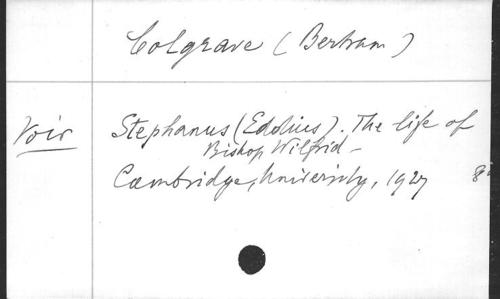 Colgrave (Bertram)
Voir Stephanus (Eddius). The life of
Bishop Wilfrid -
Cambridge, University, 1927 8°